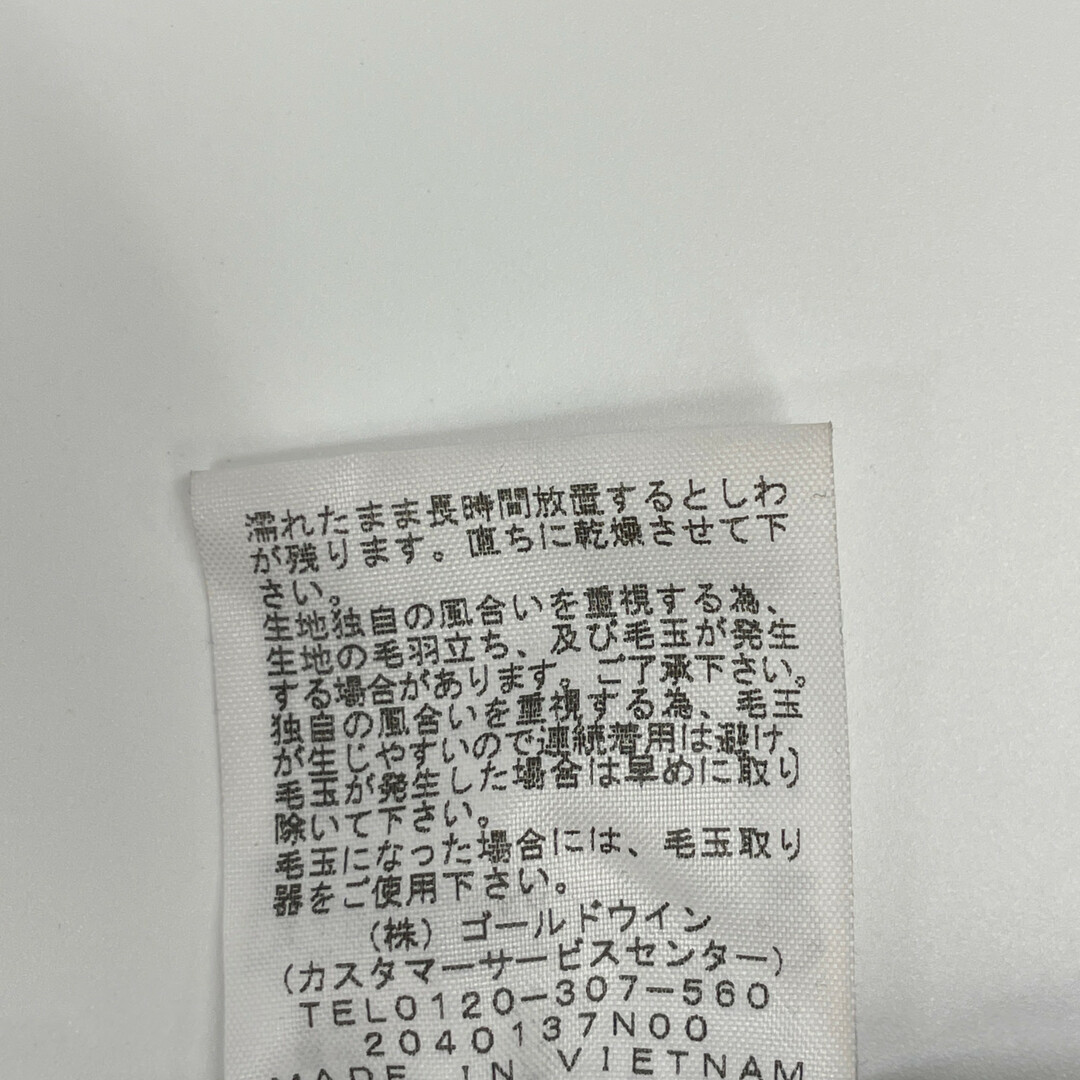 濡れたまま長時間放置するとしわ
が残ります。直ちに乾燥させて下
さい。
生地独自の風合いを重視する為、
生地の毛羽立ち、及び毛玉が発生
する場合があります。ご了承下さい。
独自の風合いを重視する為、毛玉
が生じやすいので連続着用は避け、
毛玉が発生した場合は早めに取り
除いて下さい。
毛玉になった場合には、毛玉取り
器をご使用下さい。
(株)ゴールドウイン
(カスタマーサービスセンター)
TEL0120-307-560
2040137N00
MADE IN VIETNAM